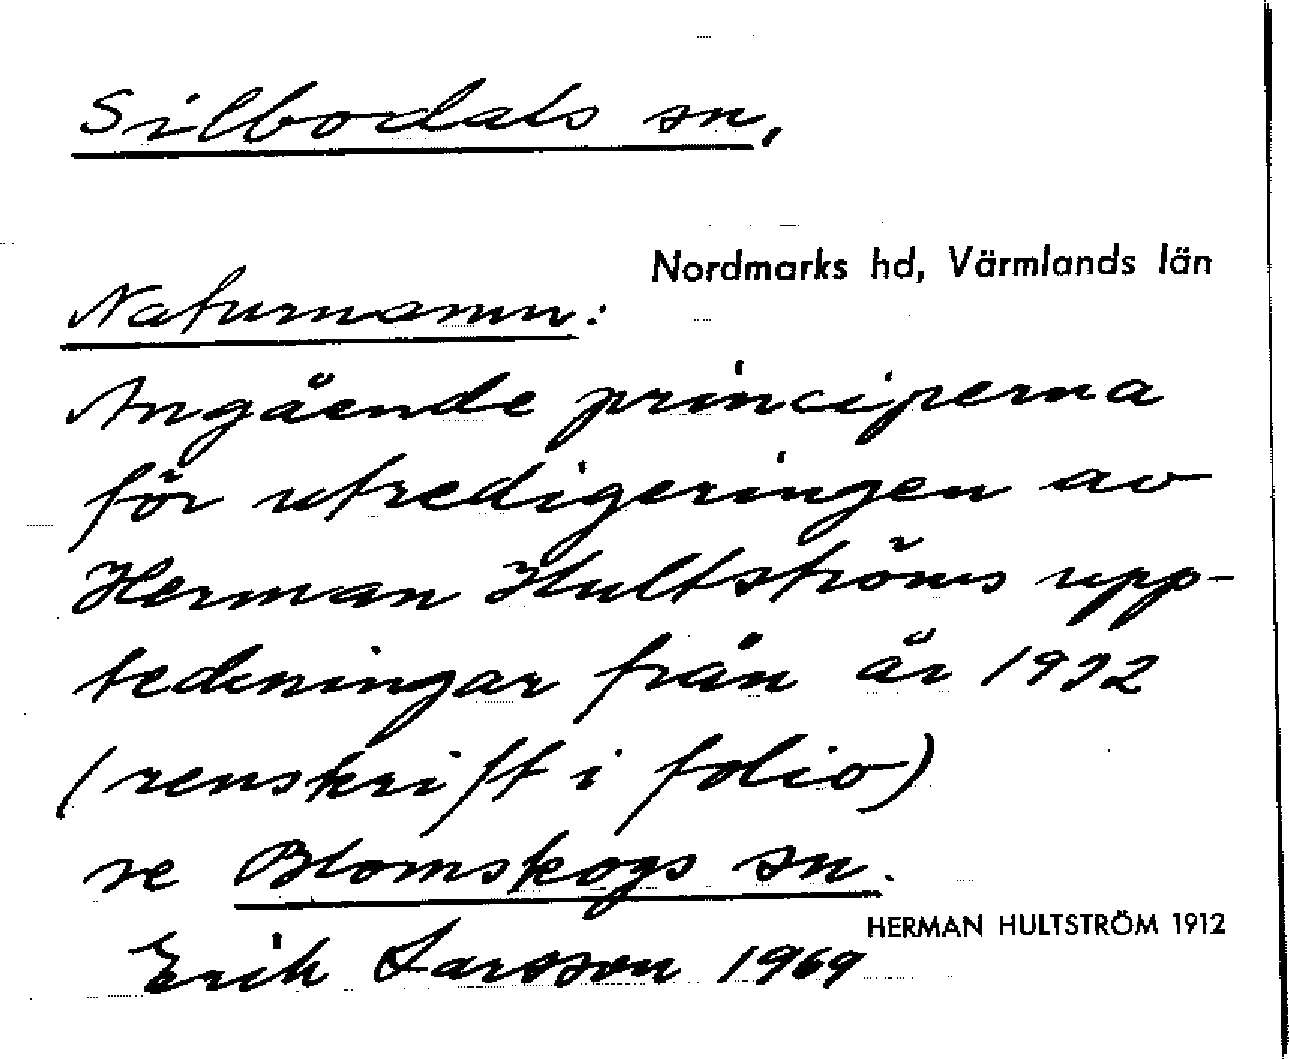 Silbodals sn,
Nordmarks hd, Värmlands län
Naturnamn:
Angående principerna
för utredigeringen av
Herman Hultströms upp-
teckningar från år 1912
(renskrift i folio)
se Blomskogs sn.
HERMAN HULTSTRÖM 1912
Erik Larsson 1969